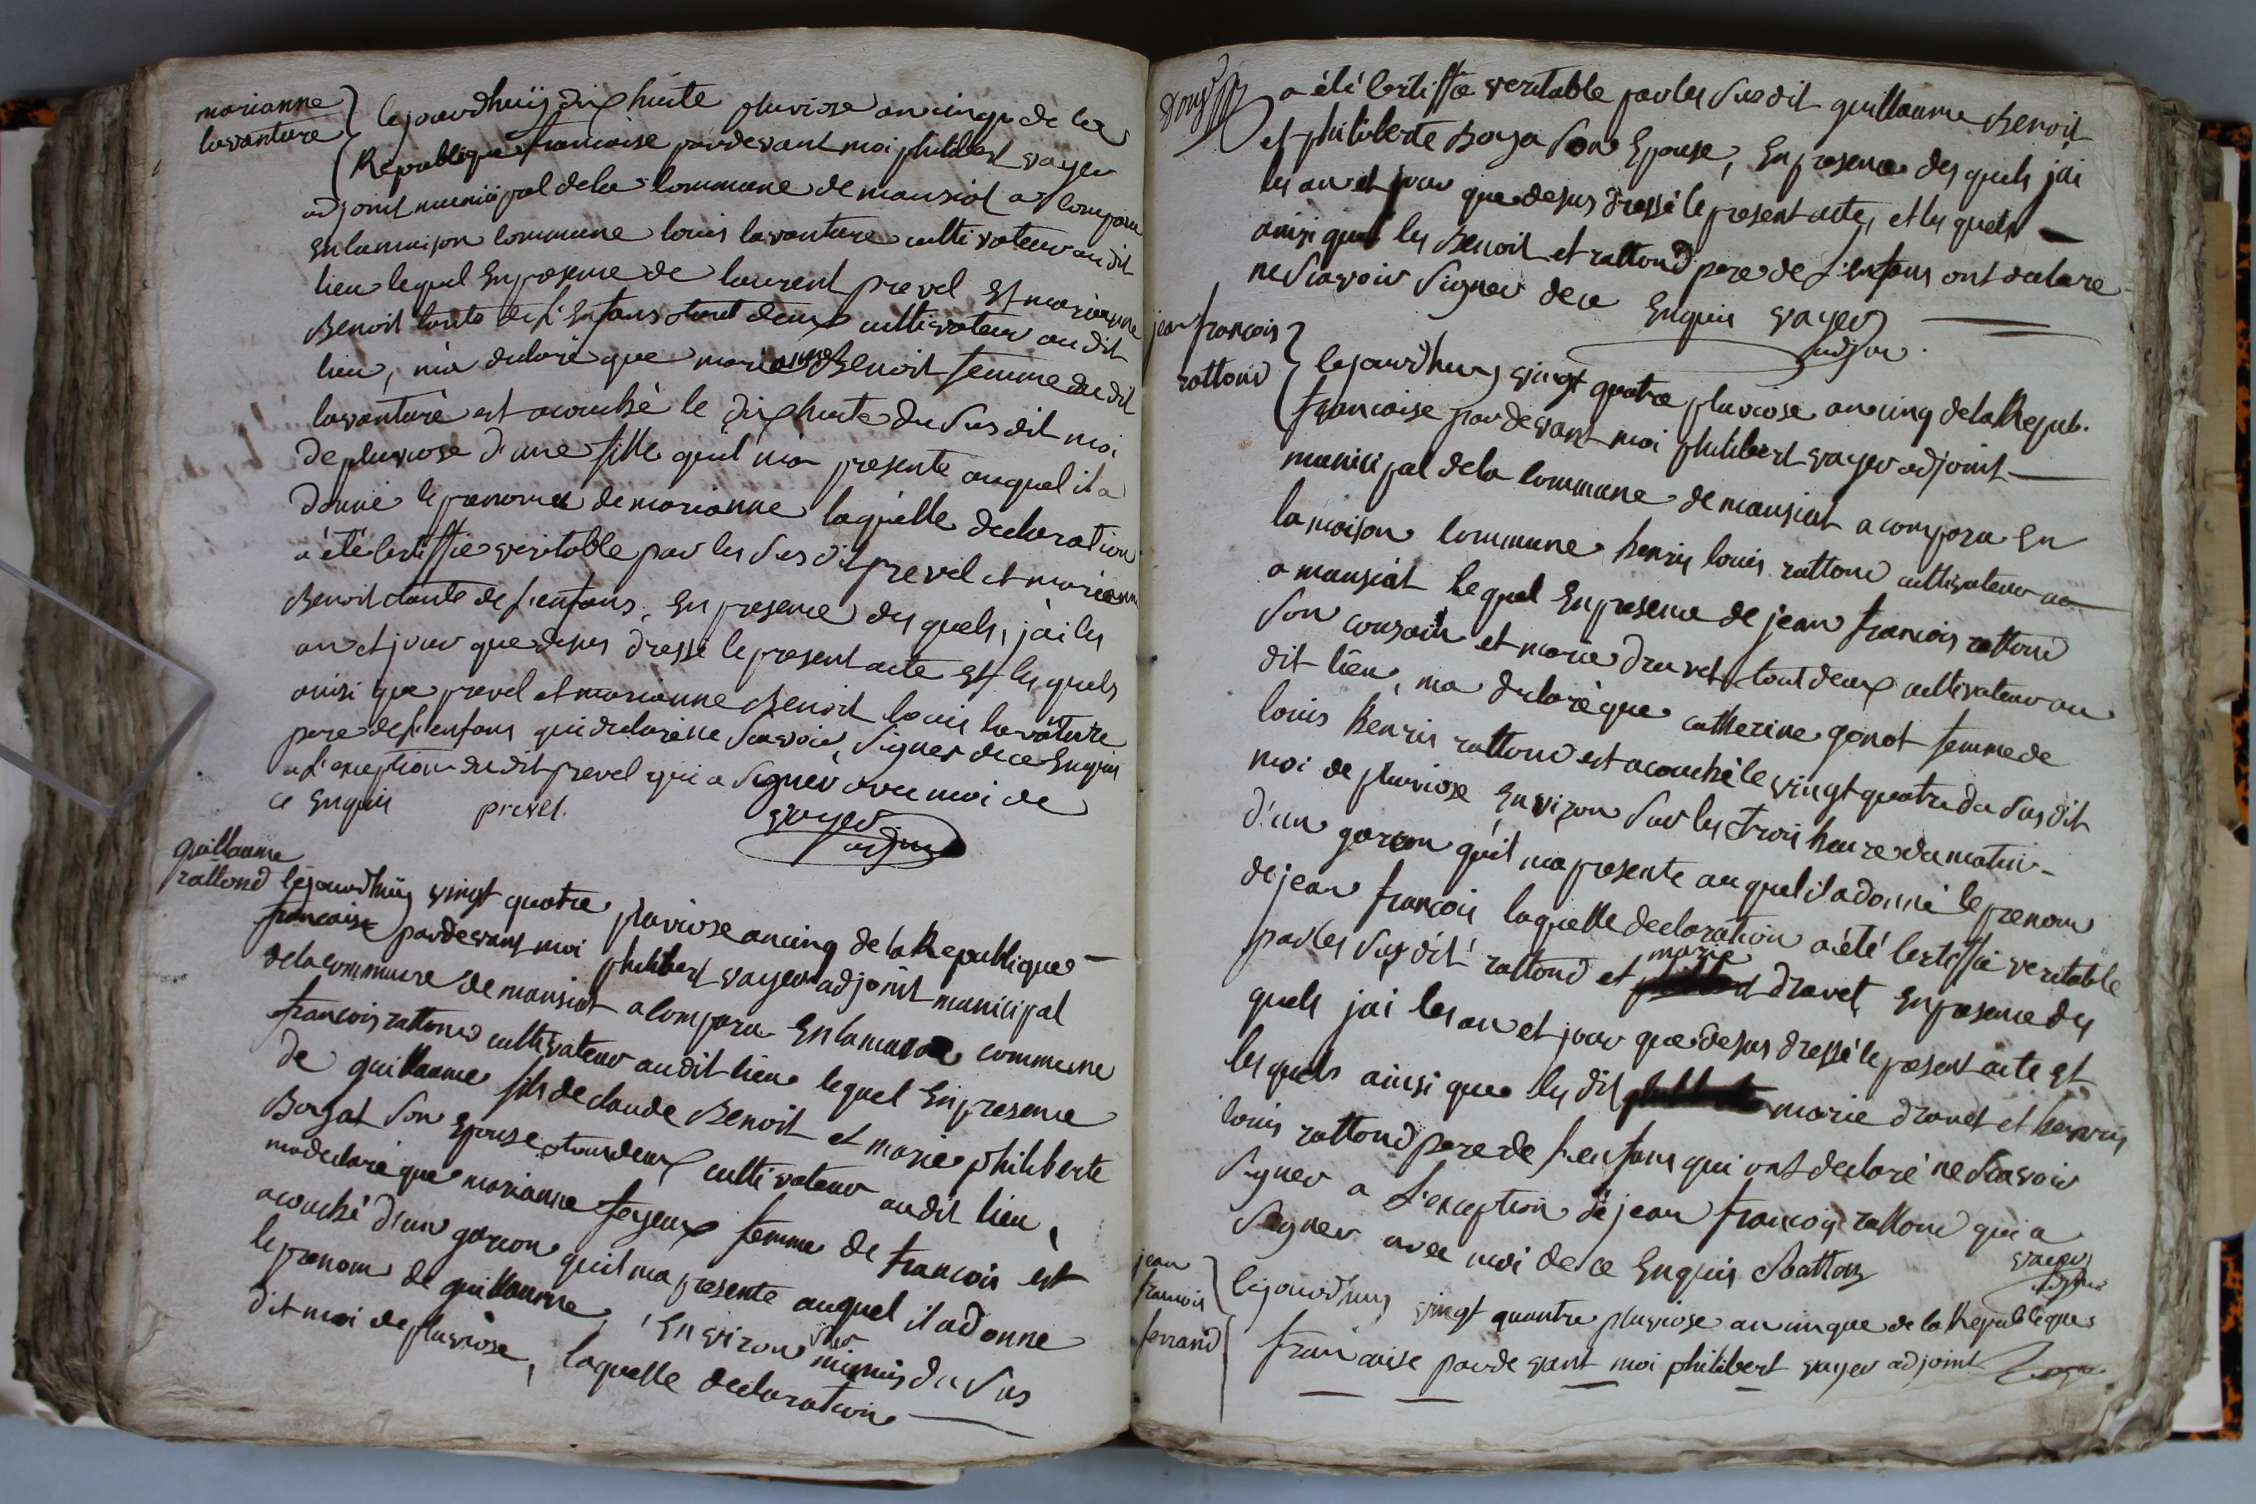 marianne
lavanture
cejourdhuÿ dix huite pluviose an cinqe de la
Republique francaise pardevant moi philibert vayer
adjoint municipal de la commune de mansiat a compara
En la maison commune louis lavanture cultivateur au dit
lieu lequel En presense de laurent prevel Et marianne
Benoit tante de l'Enfans tout deux cultivateur au dit
lieu, m'a declaré que marianne Benoit femme du dit
lavanture est acouché le dix huite du sus dit moi
de pluviose d'une fille quil m'a presente auquel il a
donné le prenom de marianne laquelle declaration
a été certiffie veritable par les sus dit prevel et marianne
Benoit tante de l'enfans, En presense des quels, j'ai les
an et jour que desus dressé le present acte Et les quels
ainsi que prevel et marianne Benoit louis lavanture
pere de l'enfans qui declare ne scavoir signer de ce Enquis
a l'exeption du dit prevel qui a signer avec moi de
ce Enquis prevel.
vayer
adjoint
guillaume
rattond
cejourdhuÿ vingt quatre pluviose an cinq de la Republique
francaise pardevant moi philibert vayer adjoint municipal
de la commune de mansiat a compara En la maison commune
francois rattond cultivateur au dit lieu lequel En presense
de guillaume fils de claude Benoit et marie philiberte
Borjat son Epouse tous deux cultivateur au dit lieu,
m'a declaré que marianne feyeux femme de francois est
acouché d'un garcon quil m'a presente auquel il a donne
le prenom de guillaume, Environ sur minuis du sus
dit moi de pluviose, laquelle declaration
a été certiffie veritable par les sus dit guillaume Benoit
et philiberte Borja son Epouse, En presense des quels j'ai
les an et jour que desus dressé le present acte, et les quels
ainsi que les Benoit et rattond pere de l'enfans ont declare
ne scavoir signer de ce Enquis vayer
adjoint
jean françois
rattond
cejourdhuy vingt quatre pluviose an cinq de la Repub.
francaise pardevant moi philibert vayer adjoint
municipal de la commune de mansiat a compara En
la maison commune henry louis rattond cultivateur
a mansiat lequel En presense de jean francois rattond
son cousain et marie dravet tout deux cultivateur au
dit lieu, m'a declaré que catherine gonot femme de
louis henris rattond est acouché le vingt quatre du sus dit
moi de pluviose Environ sur les trois heure du matin
d'un garcon qu'il m'a presente auquel il a donné le prenom
de jean françois laquelle declaration a été certiffie veritable
par les sus dit rattond et marie dravet, En presense des
quels j'ai les an et jour que desus dressé le present acte Et
les quels ainsi que les dit marie dravet et henris
louis rattond pere de l'enfans qui ont declaré ne scavoir
signer a l'exception de jean françois rattond qui a
signer avec moi de ce Enquis Rattond
vayer
adjoint
jean
francois
ferrand
cejourdhuy vingt quantre pluviose an cinque de la Republique
francaise pardevant moi philibert vayer adjoint